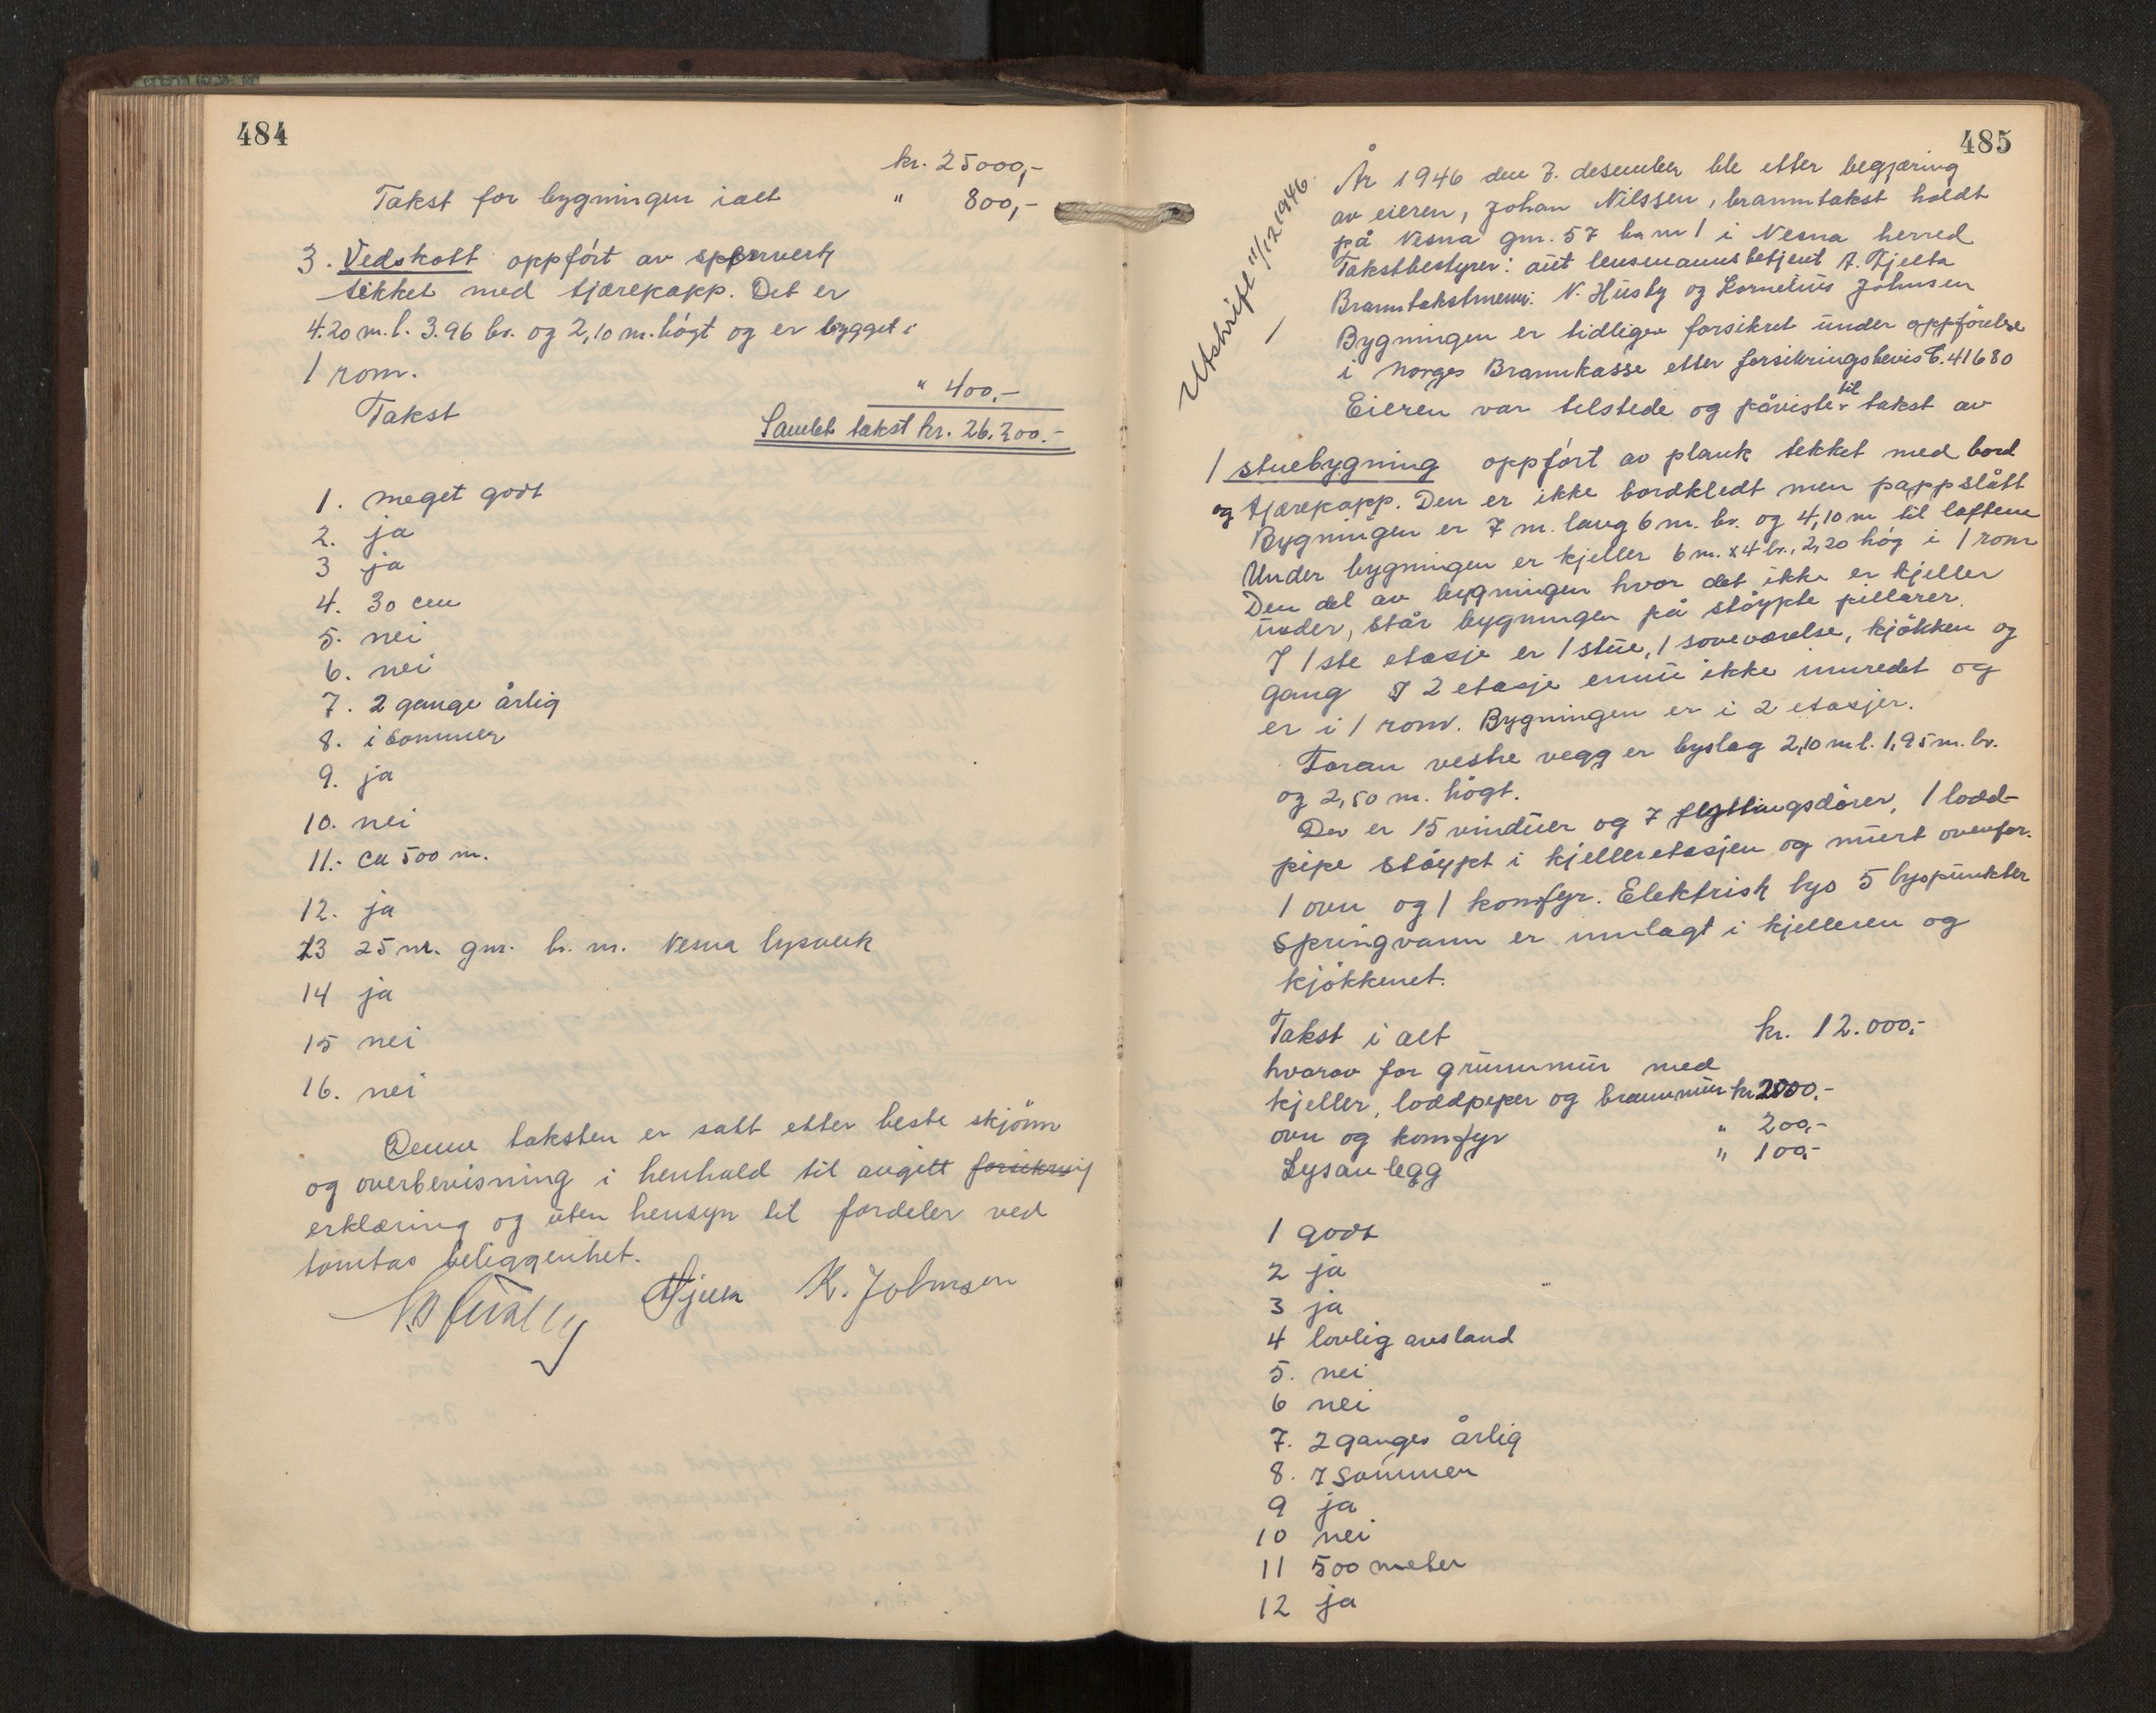 484
kr. 25000,-
Takst for bygningen ialt " 800,-
3. Vedskott oppført av sperrverk
tekket med tjærepapp. Det er
4.20 m. l. 3.96 br. og 2,10 m. högt og er bygget i
1 rom.
Takst " 400,-
Samlet takst kr. 26.200.-
1. meget godt
2. ja
3 ja
4. 30 cm
5. nei
6. nei
7. 2 gange årlig
8. i sommer
9. ja
10. nei
11.- ca 500 m.
12. ja
13 25 m. gm. br. m. Nesna lysverk
14 ja
15 nei
16. nei
Denne taksten er satt etter beste skjönn
og overbevisning i henhold til avgitt forsikring
erklæring og uten hensyn til fordeler ved
tomtas beliggenhet.
N. Husby AFjelta K. Johnsen
485
Utskrift 11/12 1946.
År 1946 den 7. desember ble etter begjæring
av eieren, Johan Nilssen, branntakst holdt
på Nesna gnr. 57 br nr 1 i Nesna herred
Takstbestyrer: aut lensmannsbetjent A. Fjelta
Branntakstmenn: N. Husby og Kornelius Johnsen
Bygningen er tidligere forsikret under oppförelse
i Norges Brannkasse etter forsikringsbevis C. 41680
Eieren var tilstede og påviste til takst av
1 stuebygning oppført av plank tekket med bord
og tjærepapp. Den er ikke bordkledt men pappslått
Bygningen er 7 m. lang 6 m. br. og 4,10 m til loftene
Under bygningen er kjeller 6 m. x 4 br., 2,20 hög i 1 rom
Den del av bygningen hvor det ikke er kjeller
under, står bygningen på stöypte pillarer.
I 1ste etasje er 1 stue, 1 soveværelse, kjökken og
gang I 2 etasje ennu ikke innredet og
er i 1 rom. Bygningen er i 2 etasjer.
Foran vestre vegg er byslag 2,10 m l. 1,95 m. br.
og 2,50 m. högt.
Der er 15 vinduer og 7 fyllingsdörer, 1 lodd-
pipe stöypt i kjelleretasjen og murt ovenfor.
1 ovn og 1 komfyr. Elektrisk lys 5 lyspunkter
Springvann er innlagt i kjelleren og
kjökkenet.
Takst i alt kr. 12.000,-
hvorav for grunnmur med
kjeller, loddpiper og brannmur kr 2000.-
ovn og komfyr " 200,-
Lysanlegg " 100,-
1 godt
2 ja
3 ja
4 lovlig avstand
5. nei
6 nei
7. 2 ganges årlig
8. I sommer
9 ja
10 nei
11 500 meter
12 ja